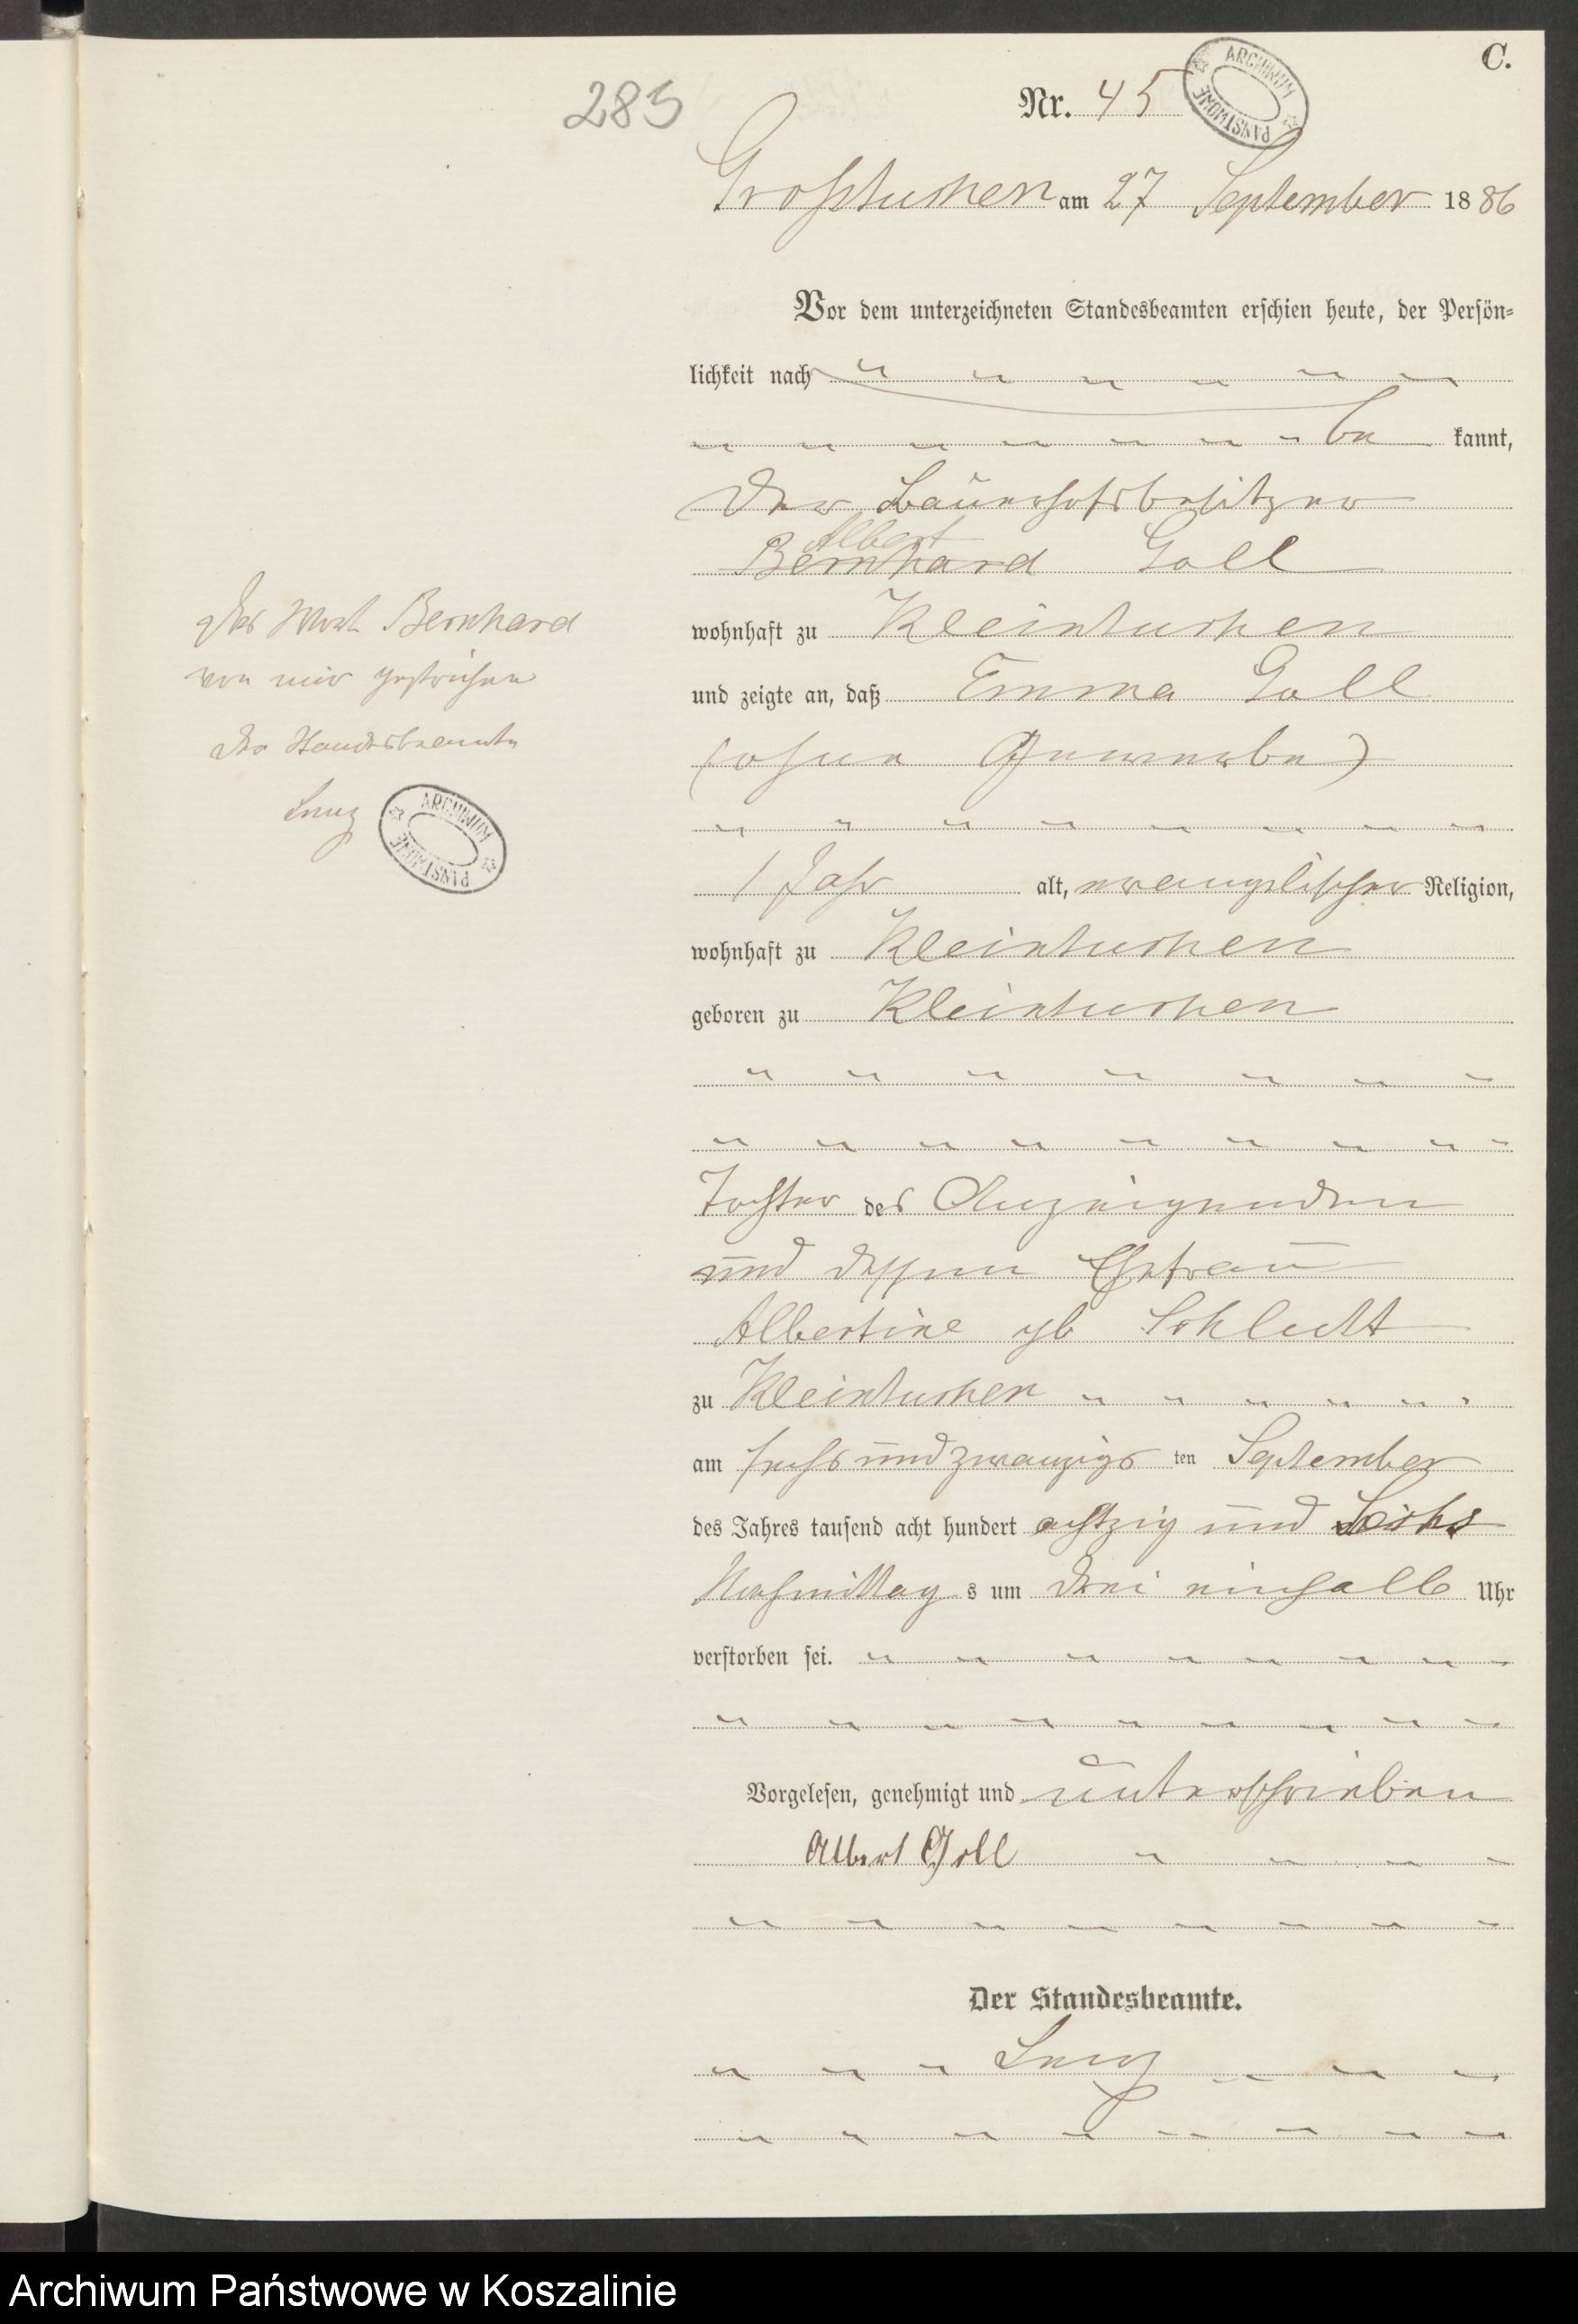 C.
285
Nr. 45
ARCHIWUM PAŃSTWOWE
Großtuchen am 27 September 1886
Vor dem unterzeichneten Standesbeamten erschien heute, der Persön-
lichkeit nach
be kannt,
der Bauerhofsbesitzer
Albert
Bernhard Goll
wohnhaft zu Kleintuchen
und zeigte an, daß Emma Goll
(ohne Gewerbe)
1 Jahr alt, evangelischer Religion,
wohnhaft zu Kleintuchen
geboren zu Kleintuchen
Tochter des Anzeigenden
und dessen Ehefrau
Albertine gb Schlicht
zu Kleintuchen
am sechs und zwanzigs ten September
des Jahres tausend acht hundert achtzig und Sechs
Nachmittag s um drei einhalb Uhr
verstorben sei.
Vorgelesen, genehmigt und unterschrieben
Albert Goll
Der Standesbeamte.
Lenz
Das Wort Bernhard
von mir gestrichen
Der Standesbeamte
Lenz
ARCHIWUM PAŃSTWOWE
Archiwum Państwowe w Koszalinie